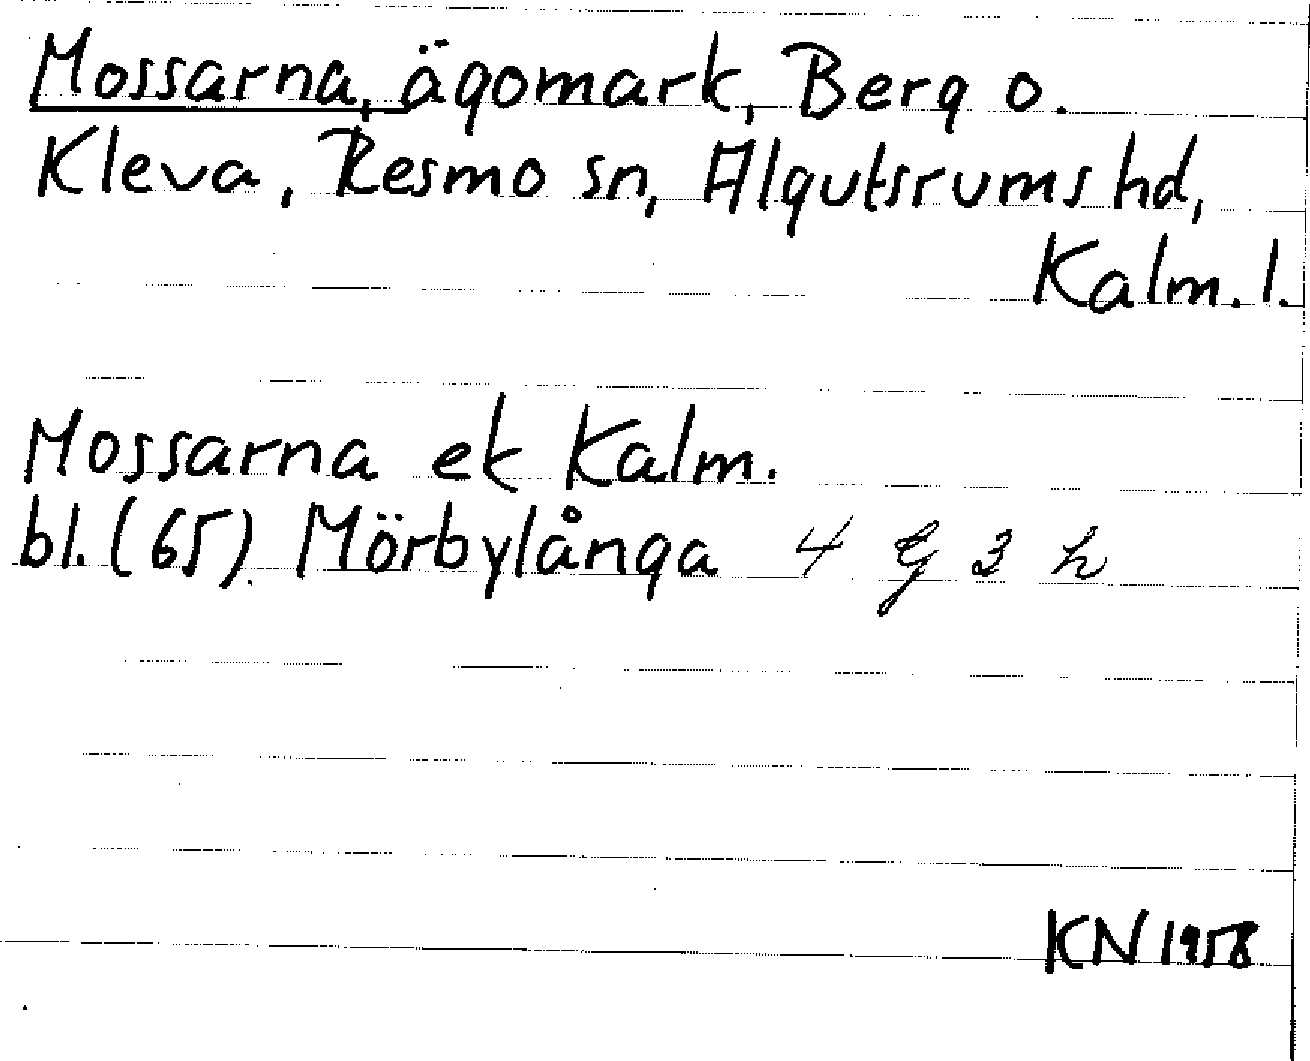 Mossarna, ägomark, Berg o.
Kleva, Resmo sn, Algutsrums hd,
Kalm. l.
Mossarna ek Kalm.
bl. (65) Mörbylånga 4 G 3 h
KN 1958